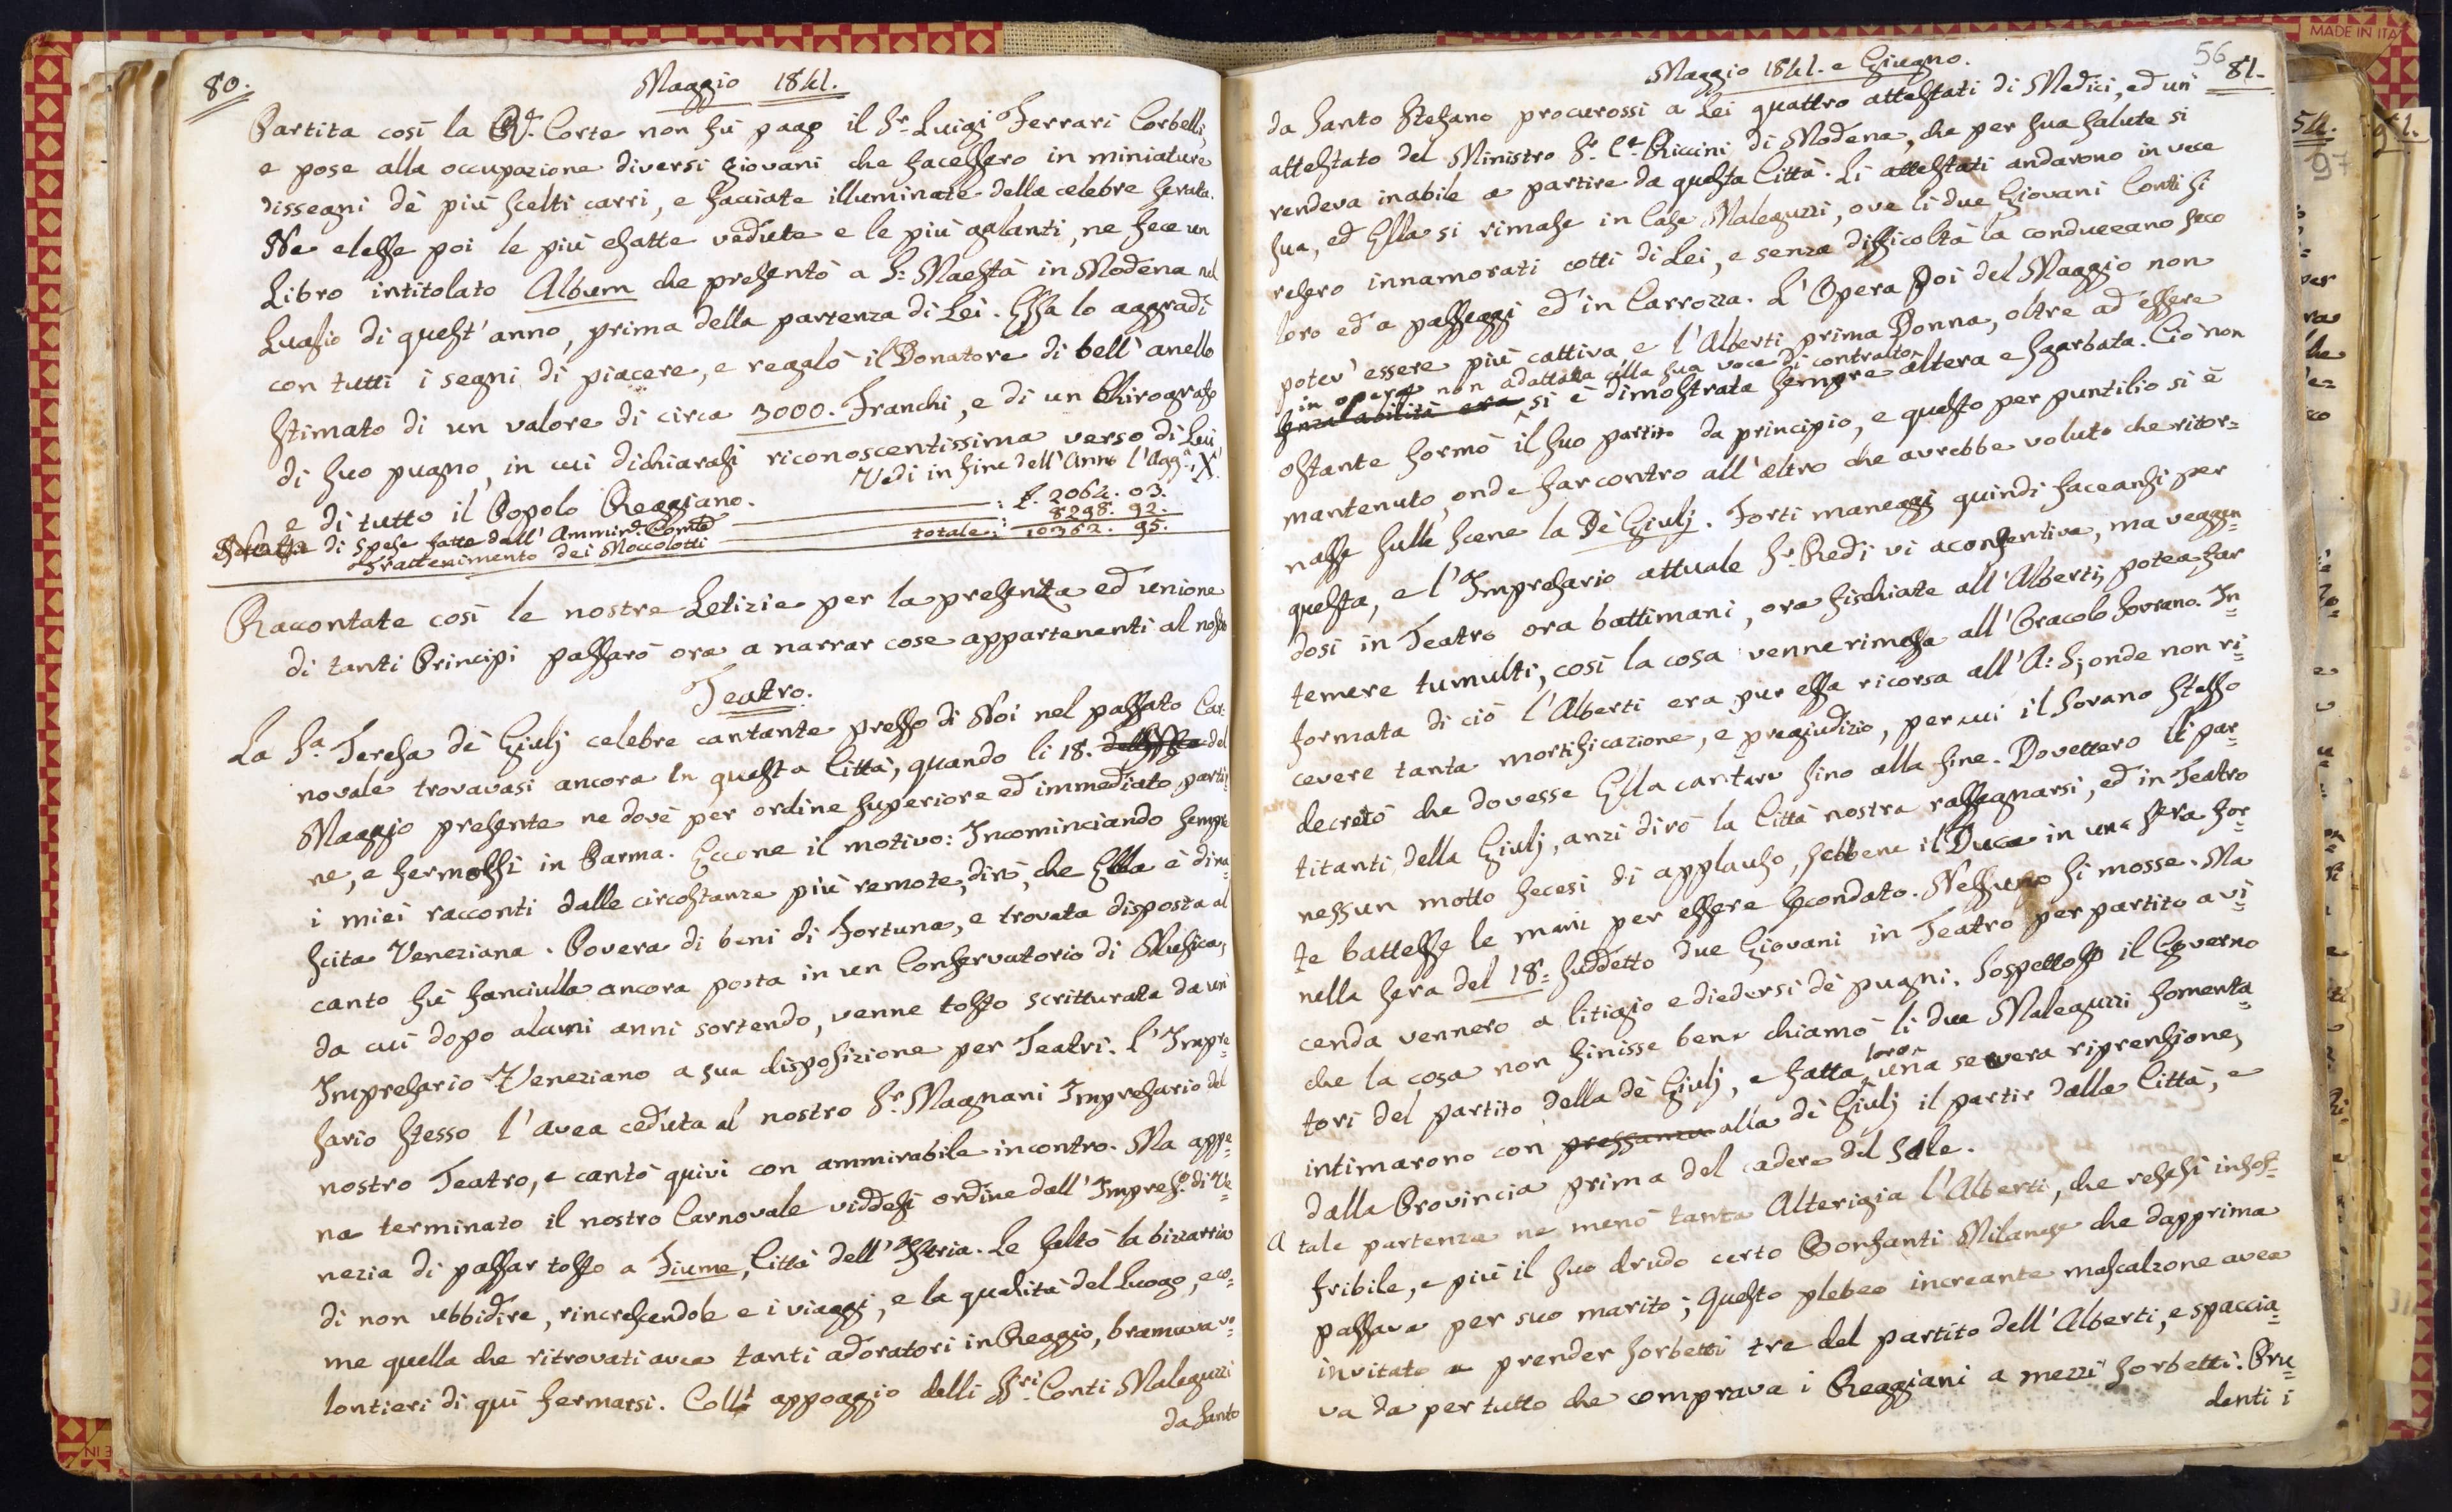 80.
Maggio 1841.
Partita così la Rl. Corte non fù pago il Sr. Luigi Ferrari Corbelli,
e pose alla occupazione diversi giovani che facessero in miniature
dissegni dè più scelti carri, e facciate illuminate della celebre serata.
Ne elesse poi le più esatte vedute e le più galanti, ne fece un
Libro intitolato Album che presentò a S: Maestà in Modena nel
Luglio di quest'anno, prima della partenza di Lei. Essa lo aggradì
con tutti i segni di piacere, e regalò il Donatore di bell'anello
stimato di un valore di circa 3000. Franchi, e di un Chirografo
di suo pugno, in cui dichiarasi riconoscentissima verso di Lui,
e di tutto il Popolo Reggiano. Vedi in fine dell'Anno l'Agg.a X.
di spese fatte dall'Ammin.e Com.e : £. 2062. 03.
Trattenimento dei Moccolotti : 8298. 92.
totale : 10362. 95.
Raccontate così le nostre Letizie per la presenza ed unione
di tanti Principi passarò ora a narrar cose appartenenti al nostro
Teatro.
La Sa. Teresa dè Giulj celebre cantante presso di Noi nel passato Car-
novale trovavasi ancora in questa Città, quando li 18. del
Maggio presente ne dovè per ordine superiore ed immediato partir-
ne, e fermossi in Parma. Eccone il motivo: Incominciando sempre
i miei racconti dalle circostanze più remote, dirò, che Ella è di na-
scita Veneziana. Povera di beni di Fortuna, e trovata disposta al
canto fù fanciulla ancora posta in un Conservatorio di Musica,
da cui dopo alcuni anni sortendo, venne tosto scritturata da un
Impresario Veneziano a sua disposizione per Teatri. L'Impre=
sario stesso l'avea ceduta al nostro Sr. Magnani Impresario del
nostro Teatro, e cantò quivi con ammirabile incontro. Ma appe=
na terminato il nostro Carnovale viddesi ordine dall'Impres.o di Ve=
nezia di passar tosto a Fiume, Città dell'Istria. Le saltò la bizzarria
di non ubbidire, rincrescendole e i viaggi, e la qualità del luogo, e co=
me quella che ritrovati avea tanti adoratori in Reggio, bramava vo=
lontieri di quì fermarsi. Coll' appoggio delli Sri. Conti Maleguzzi
da Santo
56
Maggio 1841. e Giugno.
81.
da Santo Stefano procurossi a Lei quattro attestati di Medici, ed un
attestato del Ministro Sr. Ce. Riccini di Modena, che per sua salute si
rendeva inabile a partire da questa Città. Li attestati andarono in vece
sua, ed Ella si rimase in Casa Maleguzzi, ove li due Giovani Conti si
resero innamorati cotti di Lei, e senza difficoltà la conduceano seco
loro ed a passeggi ed in Carrozza. L'Opera poi del Maggio non
potev'essere più cattiva e l'Alberti prima Donna, oltre ad essere
in opera non adattata alla sua voce di contralto
senza abilità era si è dimostrata sempre altera e sgarbata. Ciò non
ostante formò il suo partito da principio, e questo per puntilio si è
mantenuto, onde far contro all'altro che avrebbe voluto che ritor=
nasse sulle scene la Dè Giulj. Forti maneggi quindi faceansi per
questa, e l'Impresario attuale Sr. Redi vi aconsentiva, ma veggen=
dosi in Teatro ora battimani, ora fischiate all'Alberti, potea far
temere tumulti, così la cosa venne rimessa all'Oracolo Sovrano. In=
formata di ciò l'Alberti era pur essa ricorsa all'A: S; onde non ri=
cevere tanta mortificazione, e pregiudizio, per cui il Sovrano stesso
decretò che dovesse Ella cantare fino alla fine. Dovettero li par=
titanti della Giulj, anzi dirò la Città nostra rassegnarsi, ed in Teatro
nessun motto fecesi di applauso, sebbene il Duca in una sera for=
te battesse le mani per essere secondato. Nessuno si mosse. Ma
nella sera del 18= suddetto due Giovani in Teatro per partito a vi=
cenda vennero a litigio e diedersi dè pugni. Sospettoso il Governo
che la cosa non finisse bene chiamò li due Maleguzzi fomenta=
tori del partito della dè Giulj, e fatta loro una severa riprensione,
intimarono con pressanza alla dè Giulj il partir dalla Città, e
dalla Provincia prima del cadere del Sole.
A tale partenza ne menò tanta Alterigia l'Alberti, che resesi insof=
fribile, e più il suo drudo certo Bonfanti Milanese che dapprima
passava per suo marito; Questo plebeo increante mascalzone avea
invitato a prender sorbetti tre del partito dell'Alberti, e spaccia=
va da per tutto che comprava i Reggiani a mezzi sorbetti. Pru=
denti i